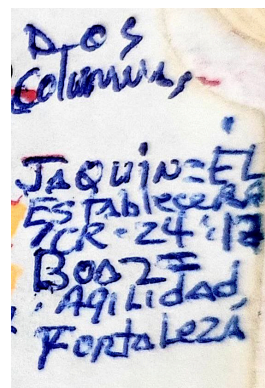 Dos
Columnas
JAQUIN = EL
EstAblecerá
1CR. 24:17
BOAZ =
AgiLidad,
FortaLezA